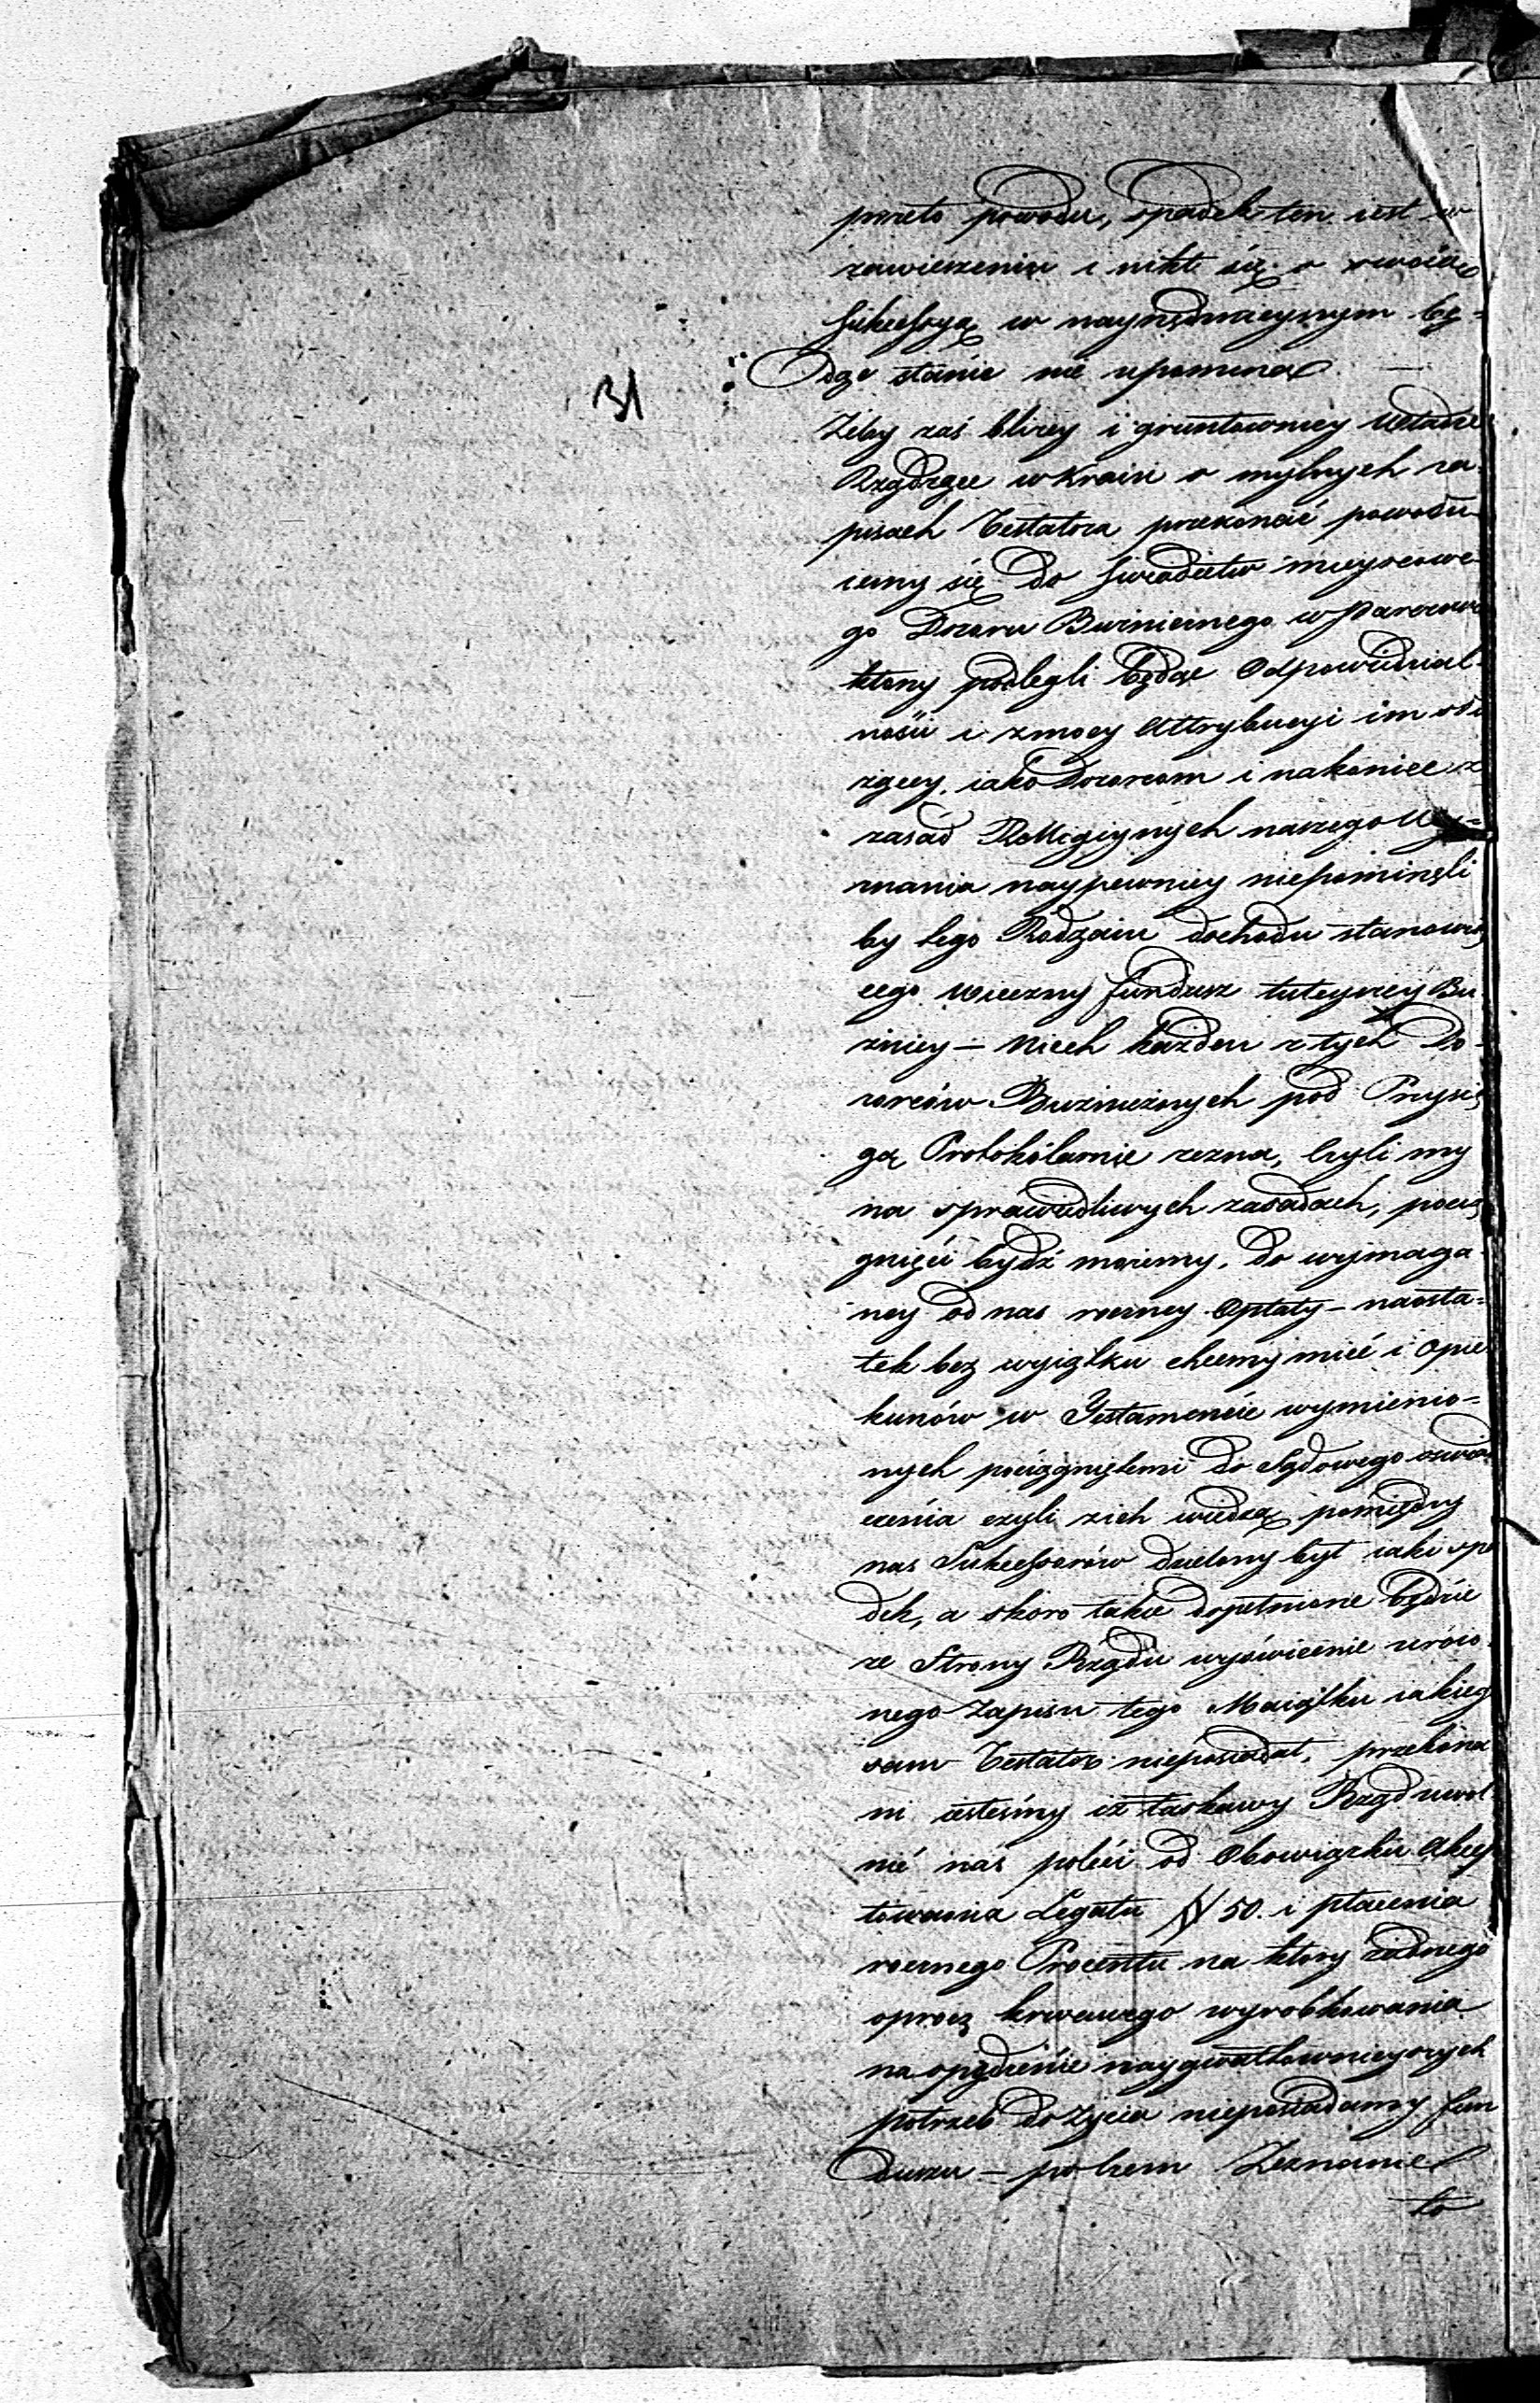 przeto powodu, spadek ten iest w
zawieszeniu i nikt się o swoią
sukcessyą w naynędznieyszym bę=
dąc stanie nie upomina
31
Żeby zaś bliżey i gruntowniey Władze
Rządzące w Kraiu o mylnych za=
pisach Testatora przekonać powołu
iemy się do świadectw mieyscowe
go Dozoru Bużnicznego w Parczewie
ktorzy podlegli będąc Odpowiedzial=
ności i z mocy Attrybucyi im słu
żącey, iako Dozorcom i nakoniec z
zasad Relligiynych naszego Wy=
znania naypewniey niepominęli
by tego Rodzaiu dochodu stanowią
cego wieczny fundusz tuteyszey Bu
żnicy – Niech każden z tych Do=
zorców Bużnicznych pod Przysię
gą Protokólarnie zezna, czyli my
na sprawiedliwych zasadach, pocią
gnięci bydź możemy, do wymaga=
ney od nas roczney Opłaty – naosta=
tek bez wyiątku chcemy mieć i Opie
kunów w Testamencie wymienio=
nych pociągniętemi do Sądowego oswiad
czenia czyli z ich wiedzą pomiędzy
nas Sukcessorów dzielony był iaki spa
dek, a skoro takie dopełnione będzie
ze Strony Rządu wyświecenie
nego Zapisu tego Maiątku iakiego
sam Testator nieposiadał, przekona
ni iestesmy iż łaskawy Rząd uwol
nić nas poleci od Obowiązku Akcep
towania Legatu # 50. i płacenia
rocznego Procentu na ktory żadnego
oprocz krwawego wyrobkowania
na opędzenie naygwałtownieyszych
potrzeb do życia nieposiadamy fun
duszu – poczem Zeznanie
to